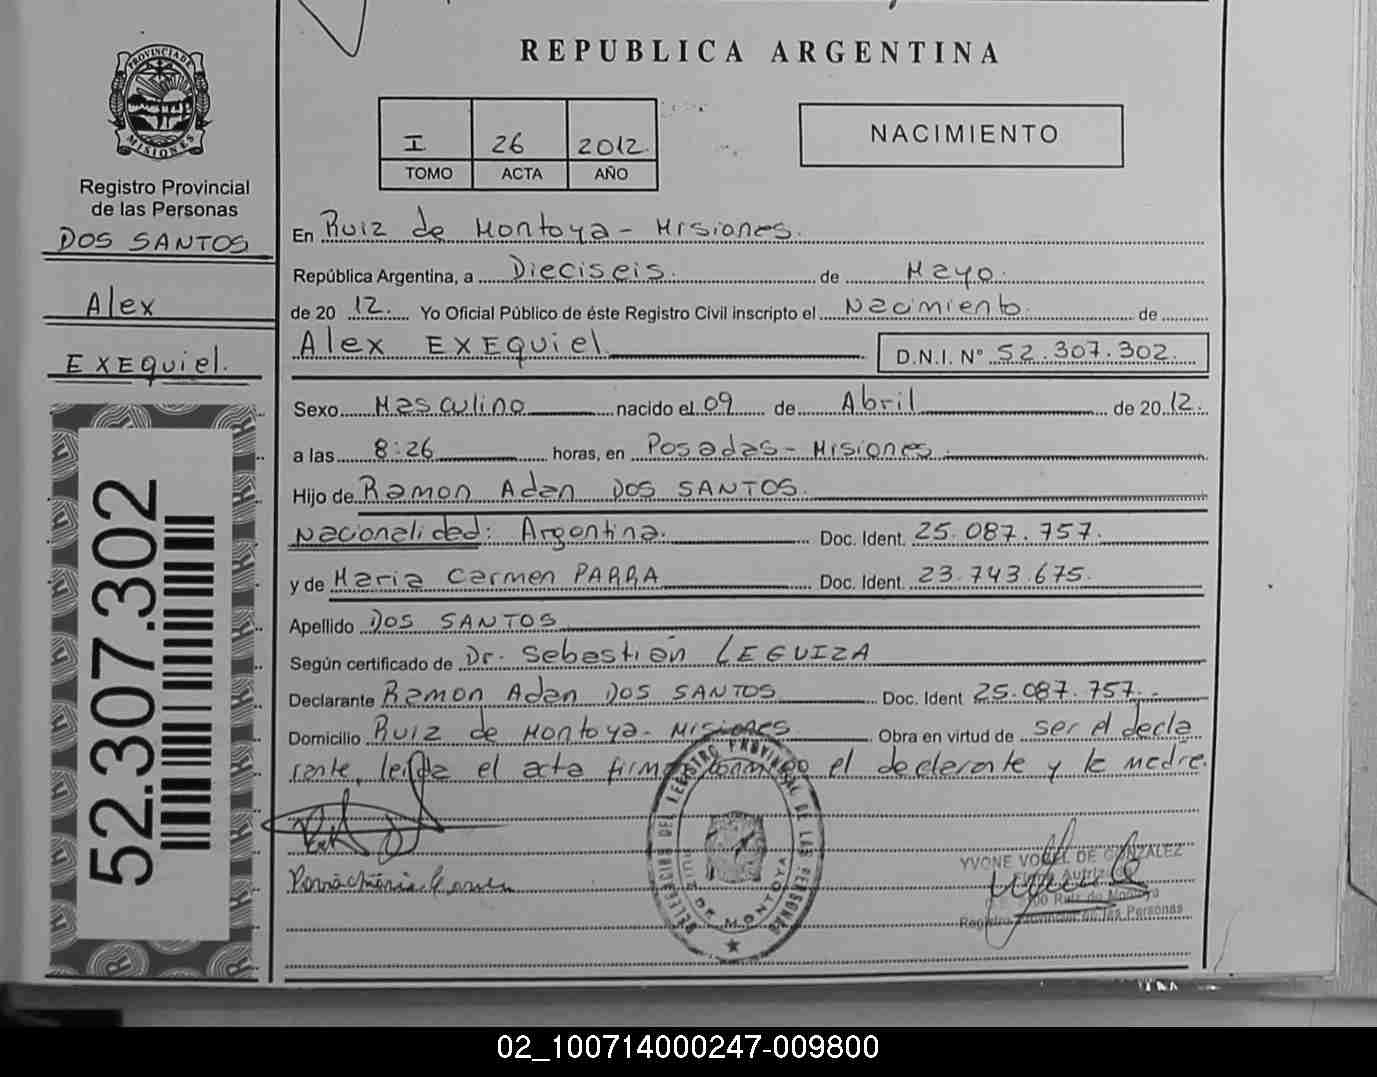 PROVINCIA DE MISIONES
Registro Provincial
de las Personas
DOS SANTOS
Alex
EXEQuiel.
52.307.302
REPUBLICA ARGENTINA
I 26 2012.
TOMO ACTA AÑO
NACIMIENTO
En Ruiz de Montoya - Misiones.
República Argentina, a Dieciseis. de Mayo.
de 20 12. Yo Oficial Público de éste Registro Civil inscripto el Nacimiento. de
Alex EXEQuiel. D.N.I. N° 52.307.302.
Sexo Masculino nacido el 09 de Abril de 20 12.
a las 8:26 horas, en Posadas - Misiones.
Hijo de Ramon Adan DOS SANTOS.
Nacionalidad: Argentina. Doc. Ident. 25.087.757.
y de Maria Carmen PARRA Doc. Ident. 23.743.675.
Apellido DOS SANTOS
Según certificado de Dr. Sebastian LEGUIZA
Declarante Ramon Adan DOS SANTOS Doc. Ident 25.087.757.
Domicilio Ruiz de Montoya - Misiones Obra en virtud de ser el decla
rante, leida el acta firma conmigo el declarante y la madre.
DELEGACION DEL REGISTRO PROVINCIAL DE LAS PERSONAS
RUIZ DE MONTOYA
Parra Maria Carmen
YVONE VOGEL DE GONZALEZ
Firma Autriz
Ruiz de Montoya
Registro Provincial de las Personas
02_100714000247-009800